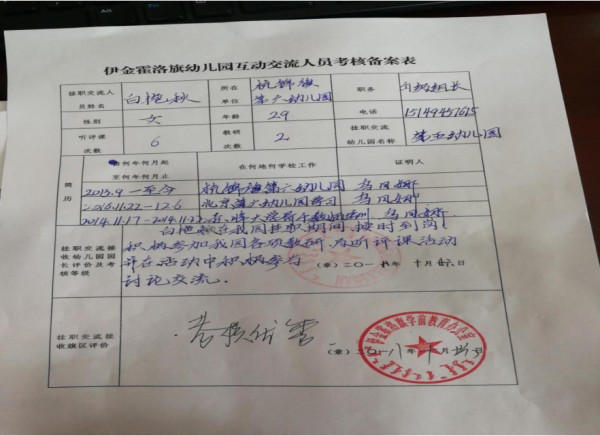 伊金霍洛旗幼儿园互动交流人员考核备案表
挂职交流人员姓名 白艳秋 所在单位 杭锦旗第六幼儿园 职务 组长
性别 女 年龄 29 电话 15149457615
听评课次数 6 教研次数 2 挂职交流幼儿园名称 第五幼儿园
简历 自何年何月起至何年何月止 在何地何学校工作 证明人
2013.9—至今 杭锦旗第六幼儿园 乌凤娜
2016.11.22-12.6 北京第六幼儿园学习 乌凤娜
2014.11.17-2014.11.22 乌凤娜
挂职交流接收幼儿园园长评价及考核等级
白艳秋在我园挂职期间,按时到岗!
积极参加我园各项教研、听评课活动
并在活动中积极参与
讨论交流.
(章)二〇一八年十月廿六日
挂职交流接收旗区评价
考核优秀
伊金霍洛旗学前教育办公室
(章)二〇一八年十月廿六日